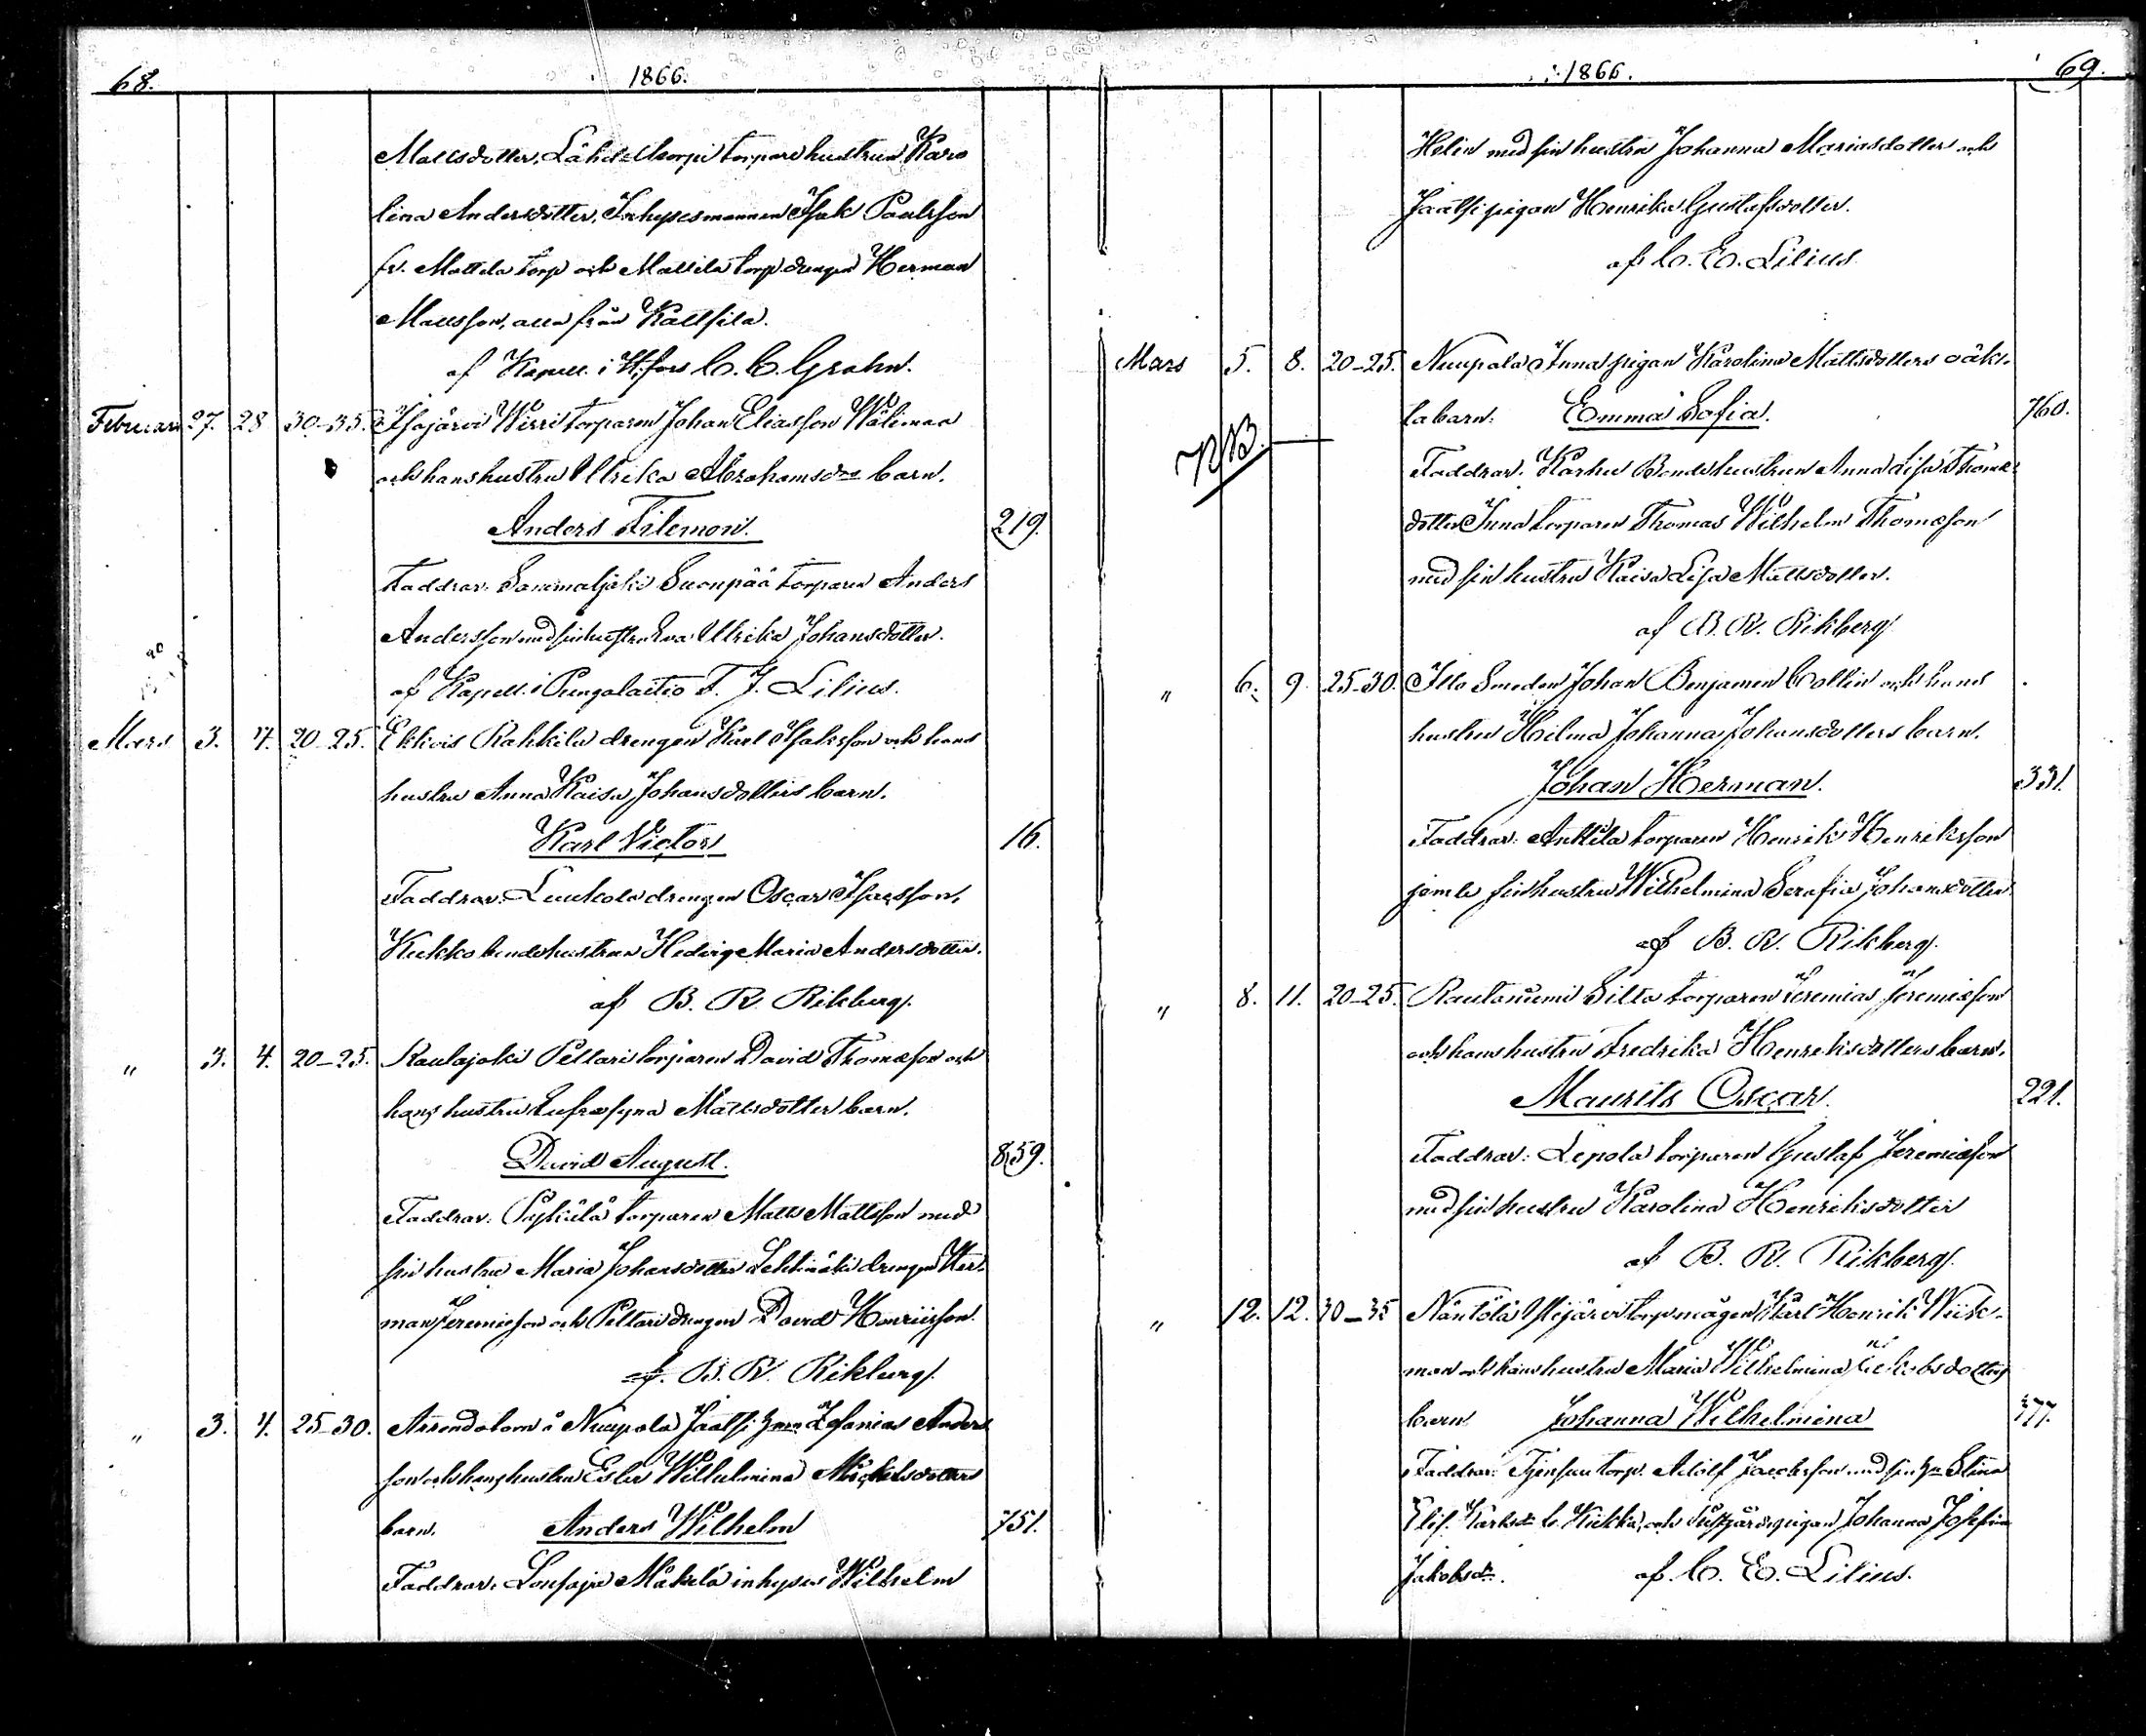 68. 1866.
Mattsdotter, Lähdekorpi torpare hustrun Karo
lina Andersdotter, Inhysesmannen Isak Paulsson
fr. Mattila torp och Mattila torp drengen Herman
Mattsson, alla från Kallsila.
af Kapell. i H:fors C. C. Grahn.
Februari 27. 28 30-35. Isojärvi Wirri torparen Johan Eliasson Wälimaa
och hans hustru Ulrika Abrahamsdrs barn.
Anders Filemon. 219.
Faddrar: Sammaljoki Suonpää torparen Anders
Andersson med sin hustru Eva Ulrika Johansdotter.
af Kapell. i Pungalaitio F. J. Lilius.
Mars 3. 4. 20-25. Ekkois Rahkila drengen Karl Isaksson och hans
hustru Anna Kaisa Johansdotters barn.
Karl Victor 16.
Faddrar: Leukola drengen Oscar Isacsson,
Kukko bonde hustrun Hedvig Maria Andersdotter.
af B. R. Rikberg.
" 3. 4. 20-25. Raulajoki Pellari torparen David Thomasson och
hans hustru Eufrosyna Mattsdotter barn.
David August. 859.
Faddrar: torparen Matts Mattsson med
sin hustru Maria Johansdotter drengen Her-
man Jeremiasson och Pellari drengen David Henriksson.
af. B. R. Rikberg.
" 3. 4. 25-30. Arrendatorn å Nuupala Jaatsi Zefanias Anders
son och hans hustru Ester Wilhelmina Mickelsdotters
barn. Anders Wilhelm 751.
Faddrar: Mäkelä inhyses Wilhelm
1866. 69.
Helin med sin hustru Johanna Mariasdotter och
Jaatsi pigan Henrika Gustafsdotter.
af C. E. Lilius
Mars 5. 8. 20-25. Nuupala Inna pigan Karolina Mattsdotters oäk-
ta barn. Emma Sofia. 760.
NB.
Faddrar: Karhu Bonde hustrun Anna Lisa Thomas
dotter Inna torparen Thomas Wilhelm Thomasson
med sin hustru Kaisa Lisa Mattsdotter.
af B. R. Rikberg
" 6. 9. 25-30. Illo Smeden Johan Benjamin Collin och hans
hustru Hilma Johanna Johansdotters barn.
Johan Herman. 331.
Faddrar: Anttila torparen Henrik Henriksson
jemte sin hustru Wilhelmina Serafia Johansdotter
af B. R. Rikberg.
" 8. 11. 20-25. Rautanumi Silta torparen Jeremias Jeremiasson
och hans hustru Fredrika Henriksdotters barn.
Maurits Oscar. 221.
Faddrar: Lepola torparen Gustaf Jeremiasson
med sin hustru Karolina Henriksdotter
af B. R. Rikberg.
" 12. 12. 30-35 Näntölä torpmågen Karl Henrik Wiik-
man och hans hustru Maria Wilhelmina Jakobsdotters
barn. Johanna Wilhelmina 377.
Faddrar: torp. Adolf Jacobsson med sin Stina
Elis. Karlsdr b. Kukka, och pigan Johanna Josefina
Jakobsdr. af. C. E. Lilius.